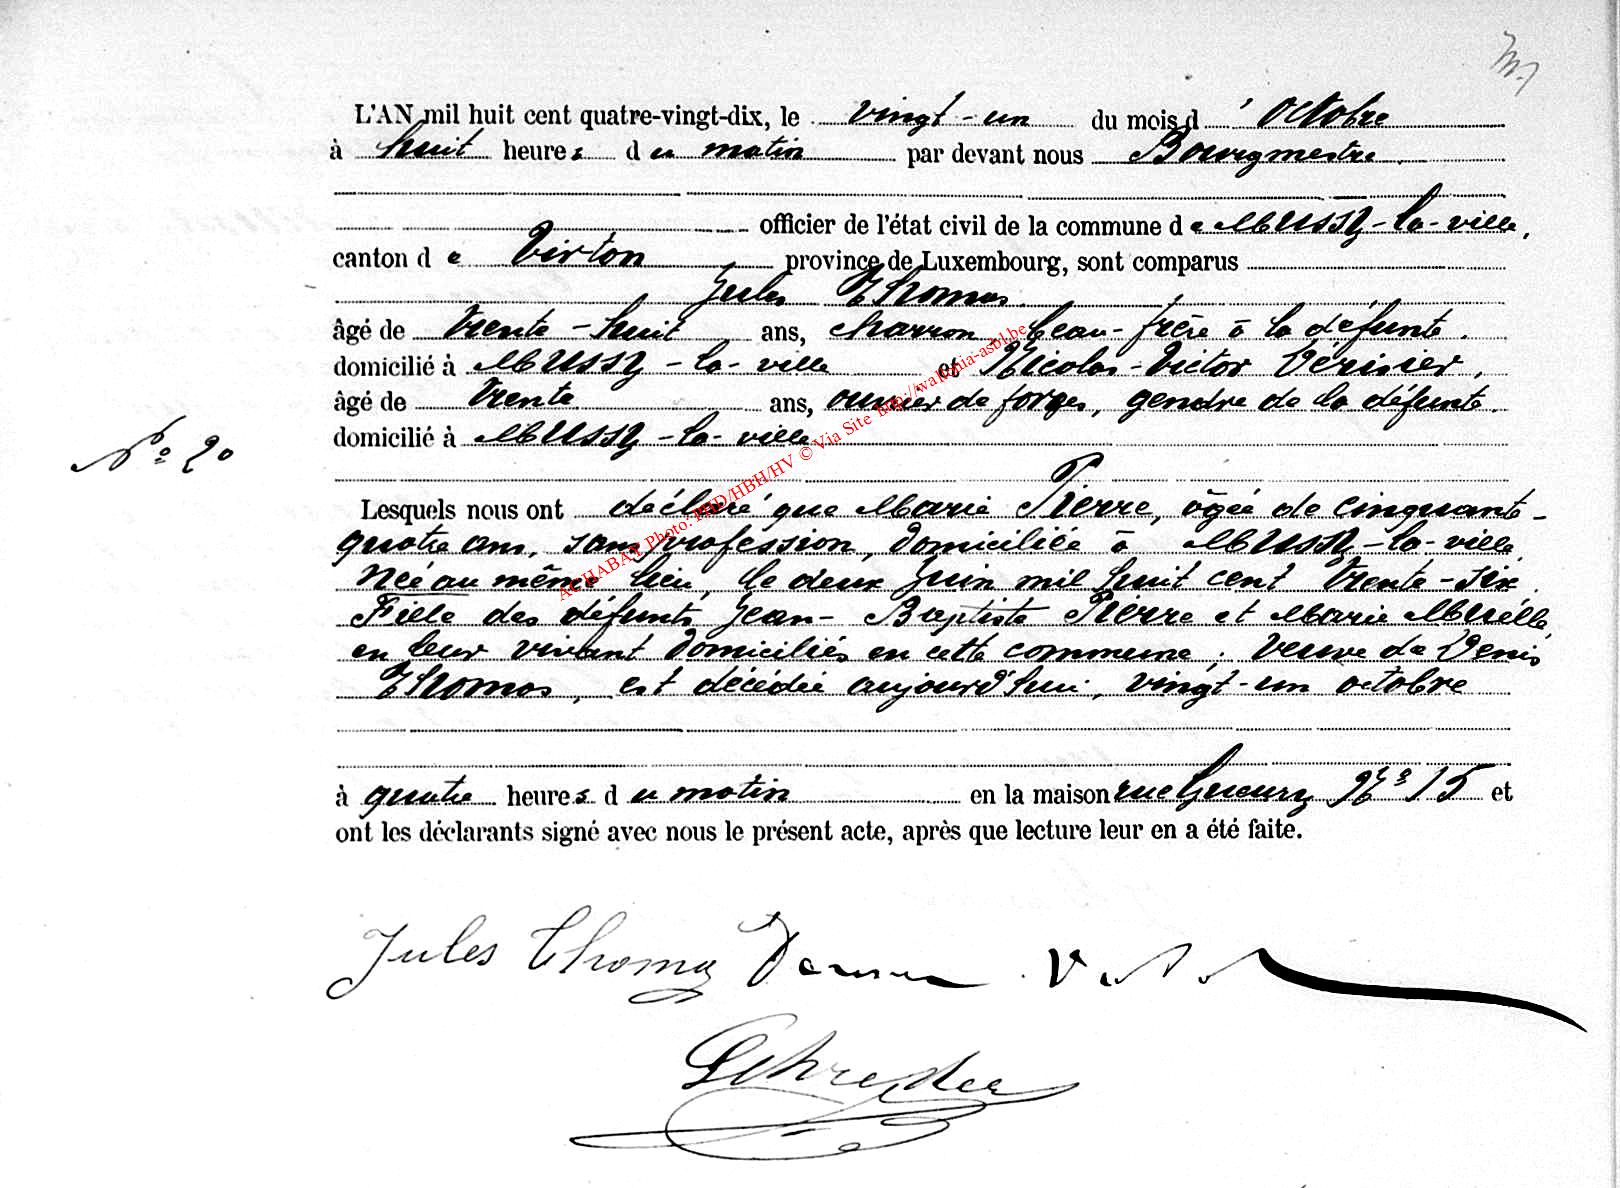 L'AN mil huit cent quatre-vingt-dix, le vingt-un du mois d'Octobre
à huit heures du matin par devant nous Bourgmestre
officier de l'état civil de la commune de Mussy-la-ville,
canton de Virton province de Luxembourg, sont comparus
Jules Thomas
âgé de trente-huit ans, charron, beau-frère à la défunte.
domicilié à Mussy-la-ville et Nicolas-Victor
âgé de trente ans, ouvrier de forges, gendre de la défunte.
domicilié à Mussy-la-ville
N° 20
Lesquels nous ont déclaré que Marie Pierre, âgée de cinquante-
quatre ans, sans profession, domiciliée à Mussy-la-ville,
Née au même lieu, le deux Juin mil huit cent trente-six.
Fille des défunts Jean-Baptiste Pierre et Marie
en leur vivant domiciliés en cette commune, veuve de Denis
Thomas, est décédée aujourd'hui, vingt-un octobre
à quatre heures du matin en la maison rue N° 15 et
ont les déclarants signé avec nous le présent acte, après que lecture leur en a été faite.
Jules Thomas
ACHABAT Photo: PHD/HBH/HV © Via Site http://wallonia-asbl.be